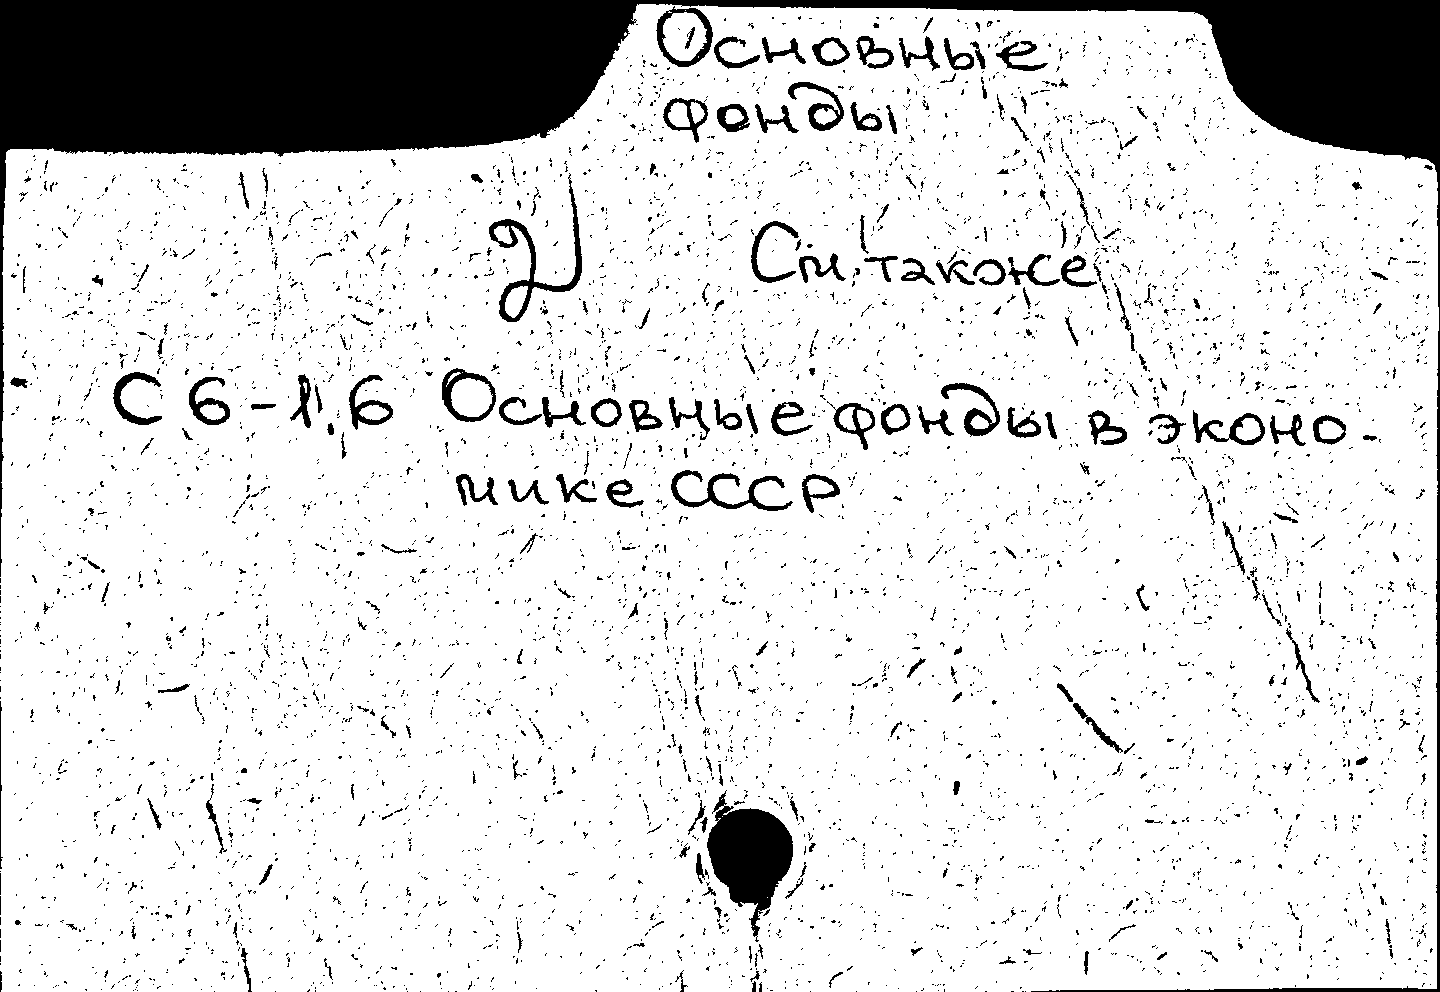 Основные
фонды
См. также
С6-1,6 Основные фонды в эконо-
мике СССР